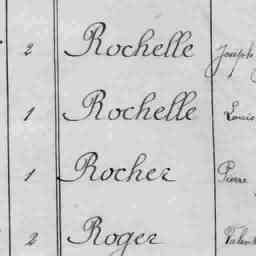 2 Rochelle Joseph
1 Rochelle Louis
1 Rocher Pierre
2 Roger